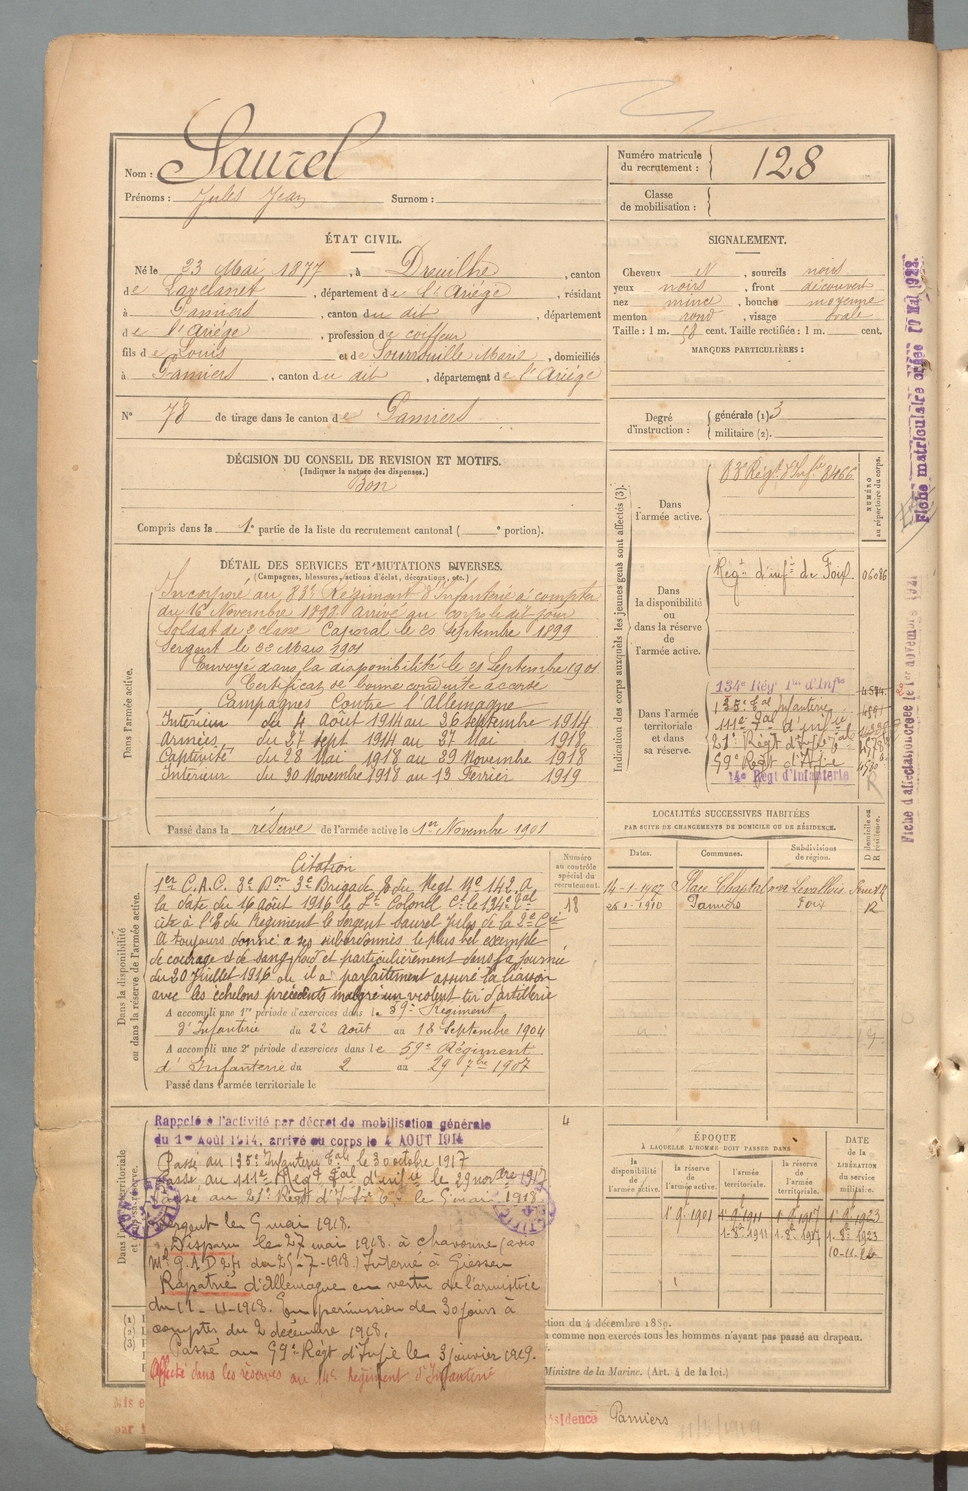 Nom : Saurel
Prénoms : Jules Jean Surnom :
Numéro matricule du recrutement : 128
Classe de mobilisation :
ÉTAT CIVIL.
Né le 23 Mai 1877, à Dreuilhe, canton
de Lavelanet, département de l'Ariége, résidant
à Pamiers, canton du dit, département
de l'Ariége, profession de coiffeur
fils de Louis et de Sourrouille Marie, domiciliés
à Pamiers, canton du dit, département de l'Ariége
N° 78 de tirage dans le canton de Pamiers
SIGNALEMENT.
Cheveux N, sourcils noirs
yeux noirs, front découvert
nez mince, bouche moyenne
menton rond, visage ovale
Taille : 1 m. 58 cent. Taille rectifiée : 1 m. cent.
MARQUES PARTICULIÈRES :
Degré d'instruction : générale (1) 3
militaire (2).
DÉCISION DU CONSEIL DE REVISION ET MOTIFS.
(Indiquer la nature des dispenses.)
Bon
Compris dans la 1e partie de la liste du recrutement cantonal ( e portion).
DÉTAIL DES SERVICES ET MUTATIONS DIVERSES.
(Campagnes, blessures, actions d'éclat, décorations, etc.)
Dans l'armée active.
Incorporé au 83e Régiment d'Infanterie à compter
du 16 Novembre 1898. Arrivé au corps le dit jour
Soldat de 2e classe Caporal le 20 Septembre 1899
Sergent le Mars 1901
Envoyé dans la disponibilité le 21 Septembre 1901
Certificat de bonne conduite accordé
Campagnes Contre l'Allemagne
Intérieur du 4 Août 1914 au 26 septembre 1914
Armées du 27 sept 1914 au 27 Mai 1918
Captivité du 28 Mai 1918 au 29 Novembre 1918
Intérieur du 30 Novembre 1918 au 13 Fevrier 1919
Passé dans la réserve de l'armée active le 1er Novembre 1901
Indication des corps auxquels les jeunes gens sont affectés (3).
NUMÉRO au répertoire du corps.
Dans l'armée active.
83e Régt d'Infie 8466
Dans la disponibilité ou dans la réserve de l'armée active.
Régt d'infie de Foix. 06086
Dans l'armée territoriale et dans sa réserve.
134e Rég Ter d'Infie
135e tal infanterie
111e tal d'infie
21e Régt d'infie
59e Regt d'Infie
14e Régt d'Infanterie
Dans la disponibilité ou dans la réserve de l'armée active.
Numéro au contrôle spécial du recrutement.
18
Citation
1er C.A.C. 3e Don 3e Brigade du Regt No 142. A
la date du 16 Août 1916 le Lt Colonel Ct le 134e tal
cite à l'O. du Régiment le Sergent Saurel Jules de la 2e Cie
A toujours donné à ses subordonnés le plus bel exemple
de courage et de sang-froid et particulièrement dans la journée
du 20 Juillet 1916 où il a parfaitement assuré la liaison
avec les échelons précédents malgré un violent tir d'artillerie
A accompli une 1re période d'exercices dans le 59e Régiment
d'Infanterie du 22 août au 18 Septembre 1904
A accompli une 2e période d'exercices dans le 59e Régiment
d'Infanterie du 2 au 29 7bre 1907
Passé dans l'armée territoriale le
LOCALITÉS SUCCESSIVES HABITÉES
PAR SUITE DE CHANGEMENTS DE DOMICILE OU DE RÉSIDENCE.
Dates. Communes. Subdivisions de région. D domicile ou R résidence.
14-1-1907 Place Chaptal Levallois Seine R
1910 Pamiers Foix R
Rappelé à l'activité par décret de mobilisation générale
du 1er Août 1914, arrivé au corps le 4 AOUT 1914
4
Passé au 135e Infanterie tal le 30 octobre 1917
Passé au 111e Regt tal d'infie le 29 novbre 1917
Passé au 21e Regt d'Inf le 5 mai 1918
Sergent le 5 mai 1918.
Disparu le 27 mai 1918. à Chavonne (avis
Interné à Giessen
Rapatrié d'Allemagne en vertu de l'armistice
du 11-11-1918. En permission de 30 jours à
compter du 2 décembre 1918.
Passé au 59e Régt d'Infie le 3 janvier 1919.
Affecté dans les réserves au 14e Régiment d'Infanterie
ÉPOQUE
À LAQUELLE L'HOMME DOIT PASSER DANS
la disponibilité de l'armée active. la réserve de l'armée active. l'armée territoriale. la réserve de l'armée territoriale.
DATE de la LIBÉRATION du service militaire.
1er 9bre 1901 1er 9bre 1911 1er 9bre 1917 1er 9bre 1923
1-8-1911 1-8-1917 1-8-1923
10-11-26
ction du 4 décembre 1889.
a comme non exercés tous les hommes n'ayant pas passé au drapeau.
Ministre de la Marine. (Art. 4 de la loi.)
Résidence Pamiers
Fiche matriculaire créée le Mai 1922.
Fiche d'affectation créée le 1er novembre 1921